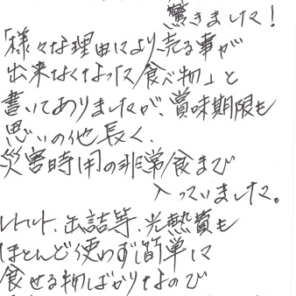 驚きました！
「様々な理由により売る事が
出来なくなった食べ物」と
書いてありましたが、賞味期限も
思いの他長く、
災害時用の非常食まで
入っていました。
レトルト、缶詰等、光熱費も
ほとんど使わず簡単に
食せる物ばかりなので